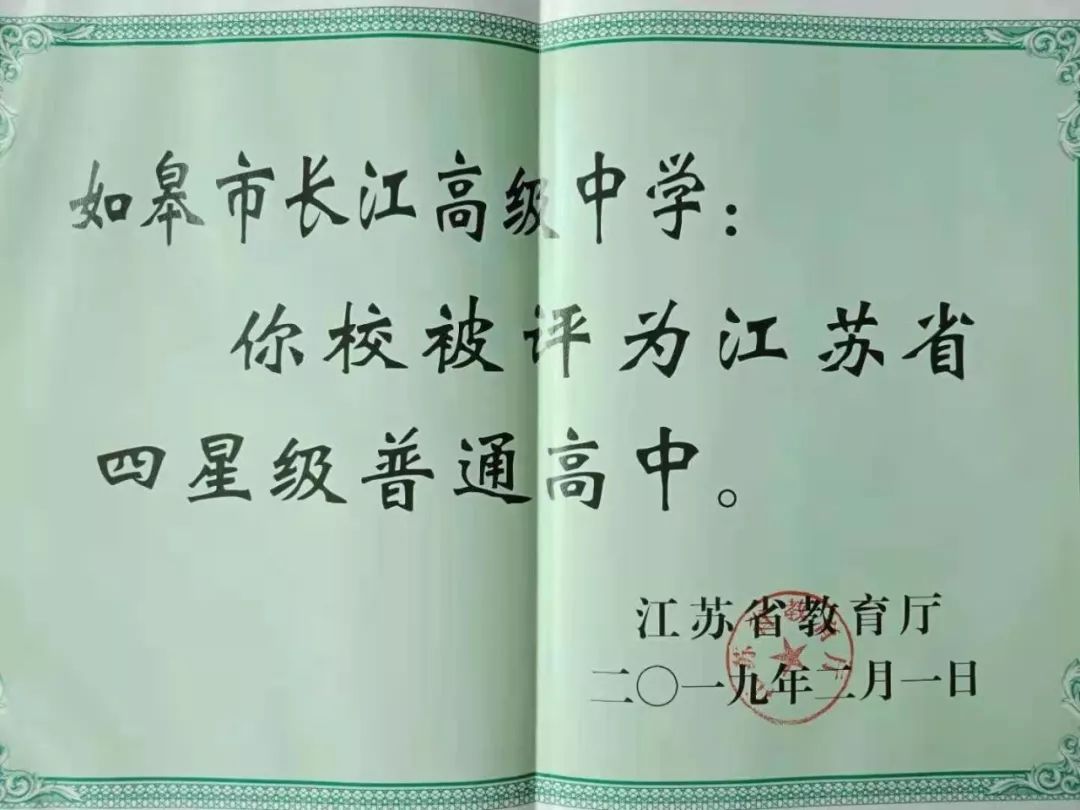 如皋市长江高级中学：
你校被评为江苏省
四星级普通高中。
江苏省教育厅
二〇一九年二月一日